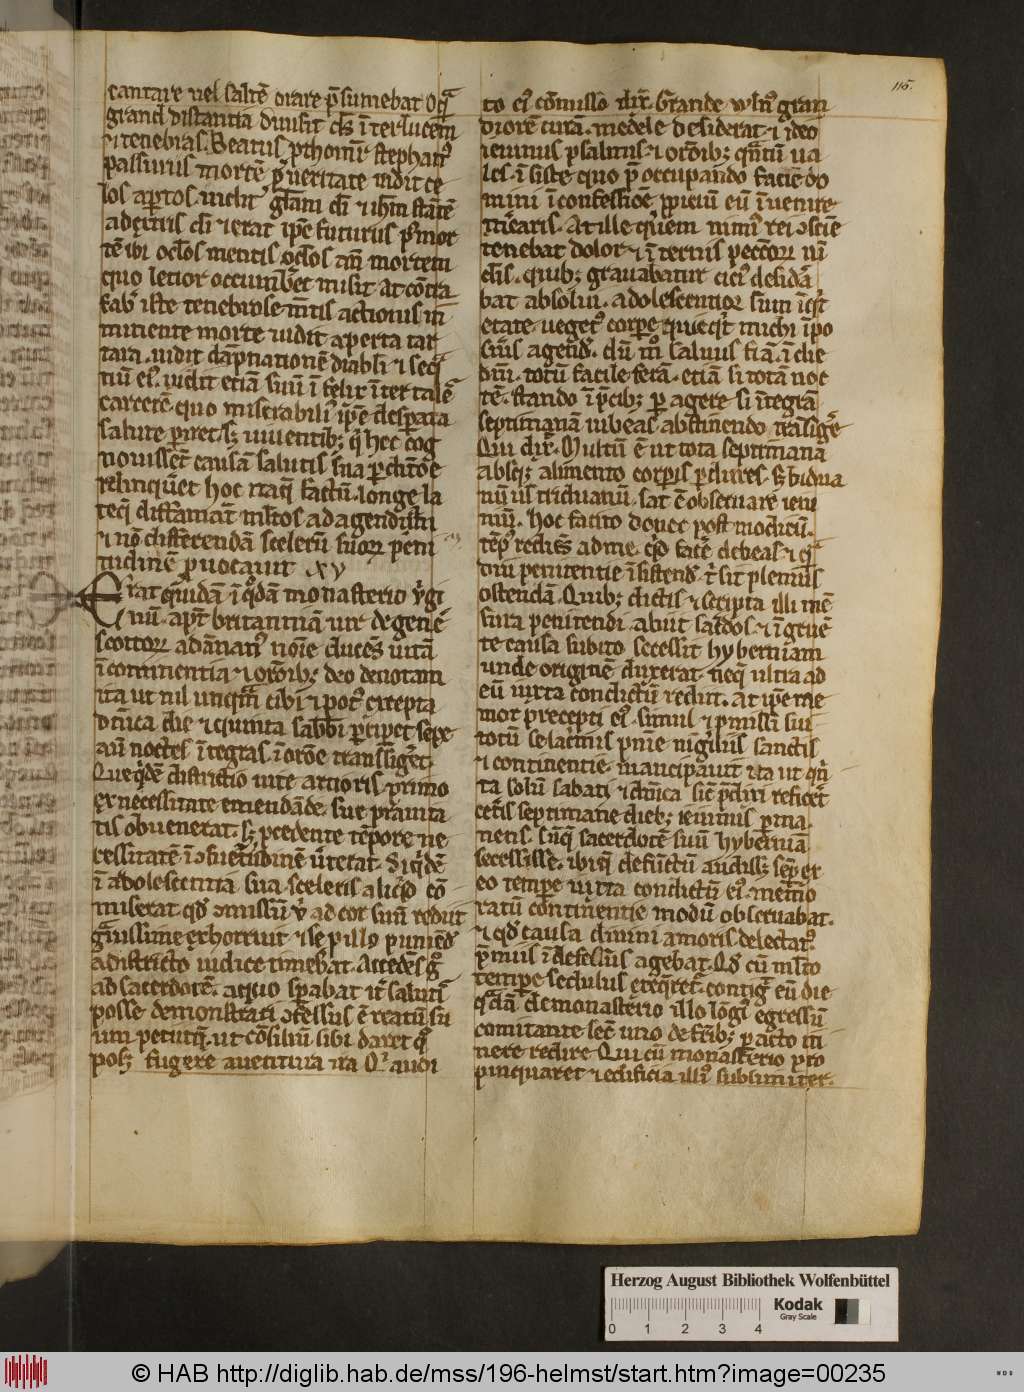 115.
cantare uel saltē orare p̄sumebat O qͣ
grandi distantia diuisit dš īter lucem
⁊ tenebras. Beatus p̲thomr̄ stephanꝰ
passurus mortē p̱ ueritate uidit ce
los apertos. uidit gl̄am di ⁊ ih̄m stātē
a dextris di ⁊ erat ip̄e futurus p̱ mor
tē ibi oc̄los mentis oc̄los an̄ mortem
quo letior occumbet misit At cōtra
fabꝰ iste tenebrose mētis actionis in
minente morte uidit aperta tar
tara. uidit dāpnationē diabli ⁊ seq̄
tiū eꝰ. uidit etiā suū īfelix īter talē
carcerē. quo miserabiliꝰ ip̄e desperata
salute periret. sꝫ uiuentibꝫ qͥ hec cog
nouissēt causā salutis sua perditiōe
relinqueret hoc itaqꝫ factū. longe la
teqꝫ diffamatū ml̄tos ad agendū
⁊ nō differendā scelerū suoꝝ peni
tudinē prouocauit xv
Erat quidā ī qͦdā monasterio uͥgi
nū. apd̄ britanniā uir de genē
scottoꝝ adānanꝰ noīe ducēs uitā
ī continentia ⁊ orōibꝫ deo deuotam
ita ut nil unqͣm cibi ⁊ potꝰ excepta
dn̄ica die ⁊ quinta sabbi perciperet sepe
aū noctes ītegras ī orōe transigeret
Que qͥdē districtio uite artioris. primo
ex necessitate emendāde sue prauita
tis obuenerat. sꝫ p̱cedente tēpore ne
cessitatē ī ↄsuetudinē ūterat. Siqͥdē
ī adolescentia sua sceleris aliqͥd cō
miserat. qd̄ ↄmissū ut ad cor suū rediit
grauissime exhorruit ⁊ se p illo puniēdū
a districto iudice timebat. Accedēs gͦ
ad sacerdotē. a quo sperabat iter salutis
posse demonstrari ↄfessus ē reatū su
um petiitqꝫ. ut cōsiliū sibi daret qͦ
posꝫ fugere a uentura ira Qͥ audi
to eꝰ cōmisso dix̄. Grande uulnꝰ gran
diorē curā. medele desiderat ⁊ ideo
ieiuniis psalmis ⁊ orōibꝫ qͣntū ua
les. īsiste quo p̄occupando faciē do
mini ī confessiōe ꝓpiciū eū īuenire
merearis. At ille quem nimiꝰ rei ↄsciē
tenebat dolor ⁊ īternis peccatoꝝ uī
clis. quibꝫ grauabatur ciciꝰ desidā
bat absolui. adolescentior sum īqͥt
etate uegetꝰ corpe quicqͥd michi īpo
sueris agend̄. dū mͦ saluus fiā. ī die
dn̄i. totū facile ferā. etiā si totā noc
tē. stando ī p̱cibꝫ peragere si ītegrā
septimanā iubeas abstinendo transigͥe
Qui dix̄. Multū ē ut tota septimana
absqꝫ alimento corpis perdures. Sꝫ bidua
nū ul̄ triduanū. sat ē obseruare ieiu
niū. hoc facito donec post modicū.
tēpꝰ rediēs ad me. qͥd facē debeas ⁊ qͣ
diu penitentie īsistend̄. t̄ sit plenius
ostendā. Quibꝫ dictis ⁊ scripta illi mē
sura penitendi. abiit sacerdos ⁊ īgruē
te causa subito secessit hyberniam
unde originē duxerat. neqꝫ ultra ad
eū iuxta condictū rediit. At ip̄e me
mor precepti eꝰ. simul ⁊ p̱missi sui
totū se lacrimis pnīe uigiliis sanctis
⁊ continentie. mancipauit ita ut qͥn
ta solū sabati ⁊ dn̄ica sic p̄dixi reficeret
cetis septimane diebꝫ ieiuniis perma
nens. Cūqꝫ sacerdotē suū hyberniā
secessisse. ibiqꝫ defūctū audissꝫ. sep̱ ex
eo tempore iuxta condictū eꝰ. memo
ratū continentie modū obseruabat.
⁊ qd̄ causa diuini amoris delectatꝰ
p̄miis īdefessus agebat. Qd̄ cū ml̄to
tempore sedulus exeqͥret. contigͥ eū die
qͣdā de monasterio illo lōgiꝰ egressū
comitante secū uno de fr̄ibꝫ. peracto iti
nere redire Qui cū monasterio pro
pinquaret ⁊ edificia illiꝰ sublimiter.
Herzog August Bibliothek Wolfenbüttel
Kodak
Gray Scale
0 1 2 3 4
© HAB http://diglib.hab.de/mss/196-helmst/start.htm?image=00235